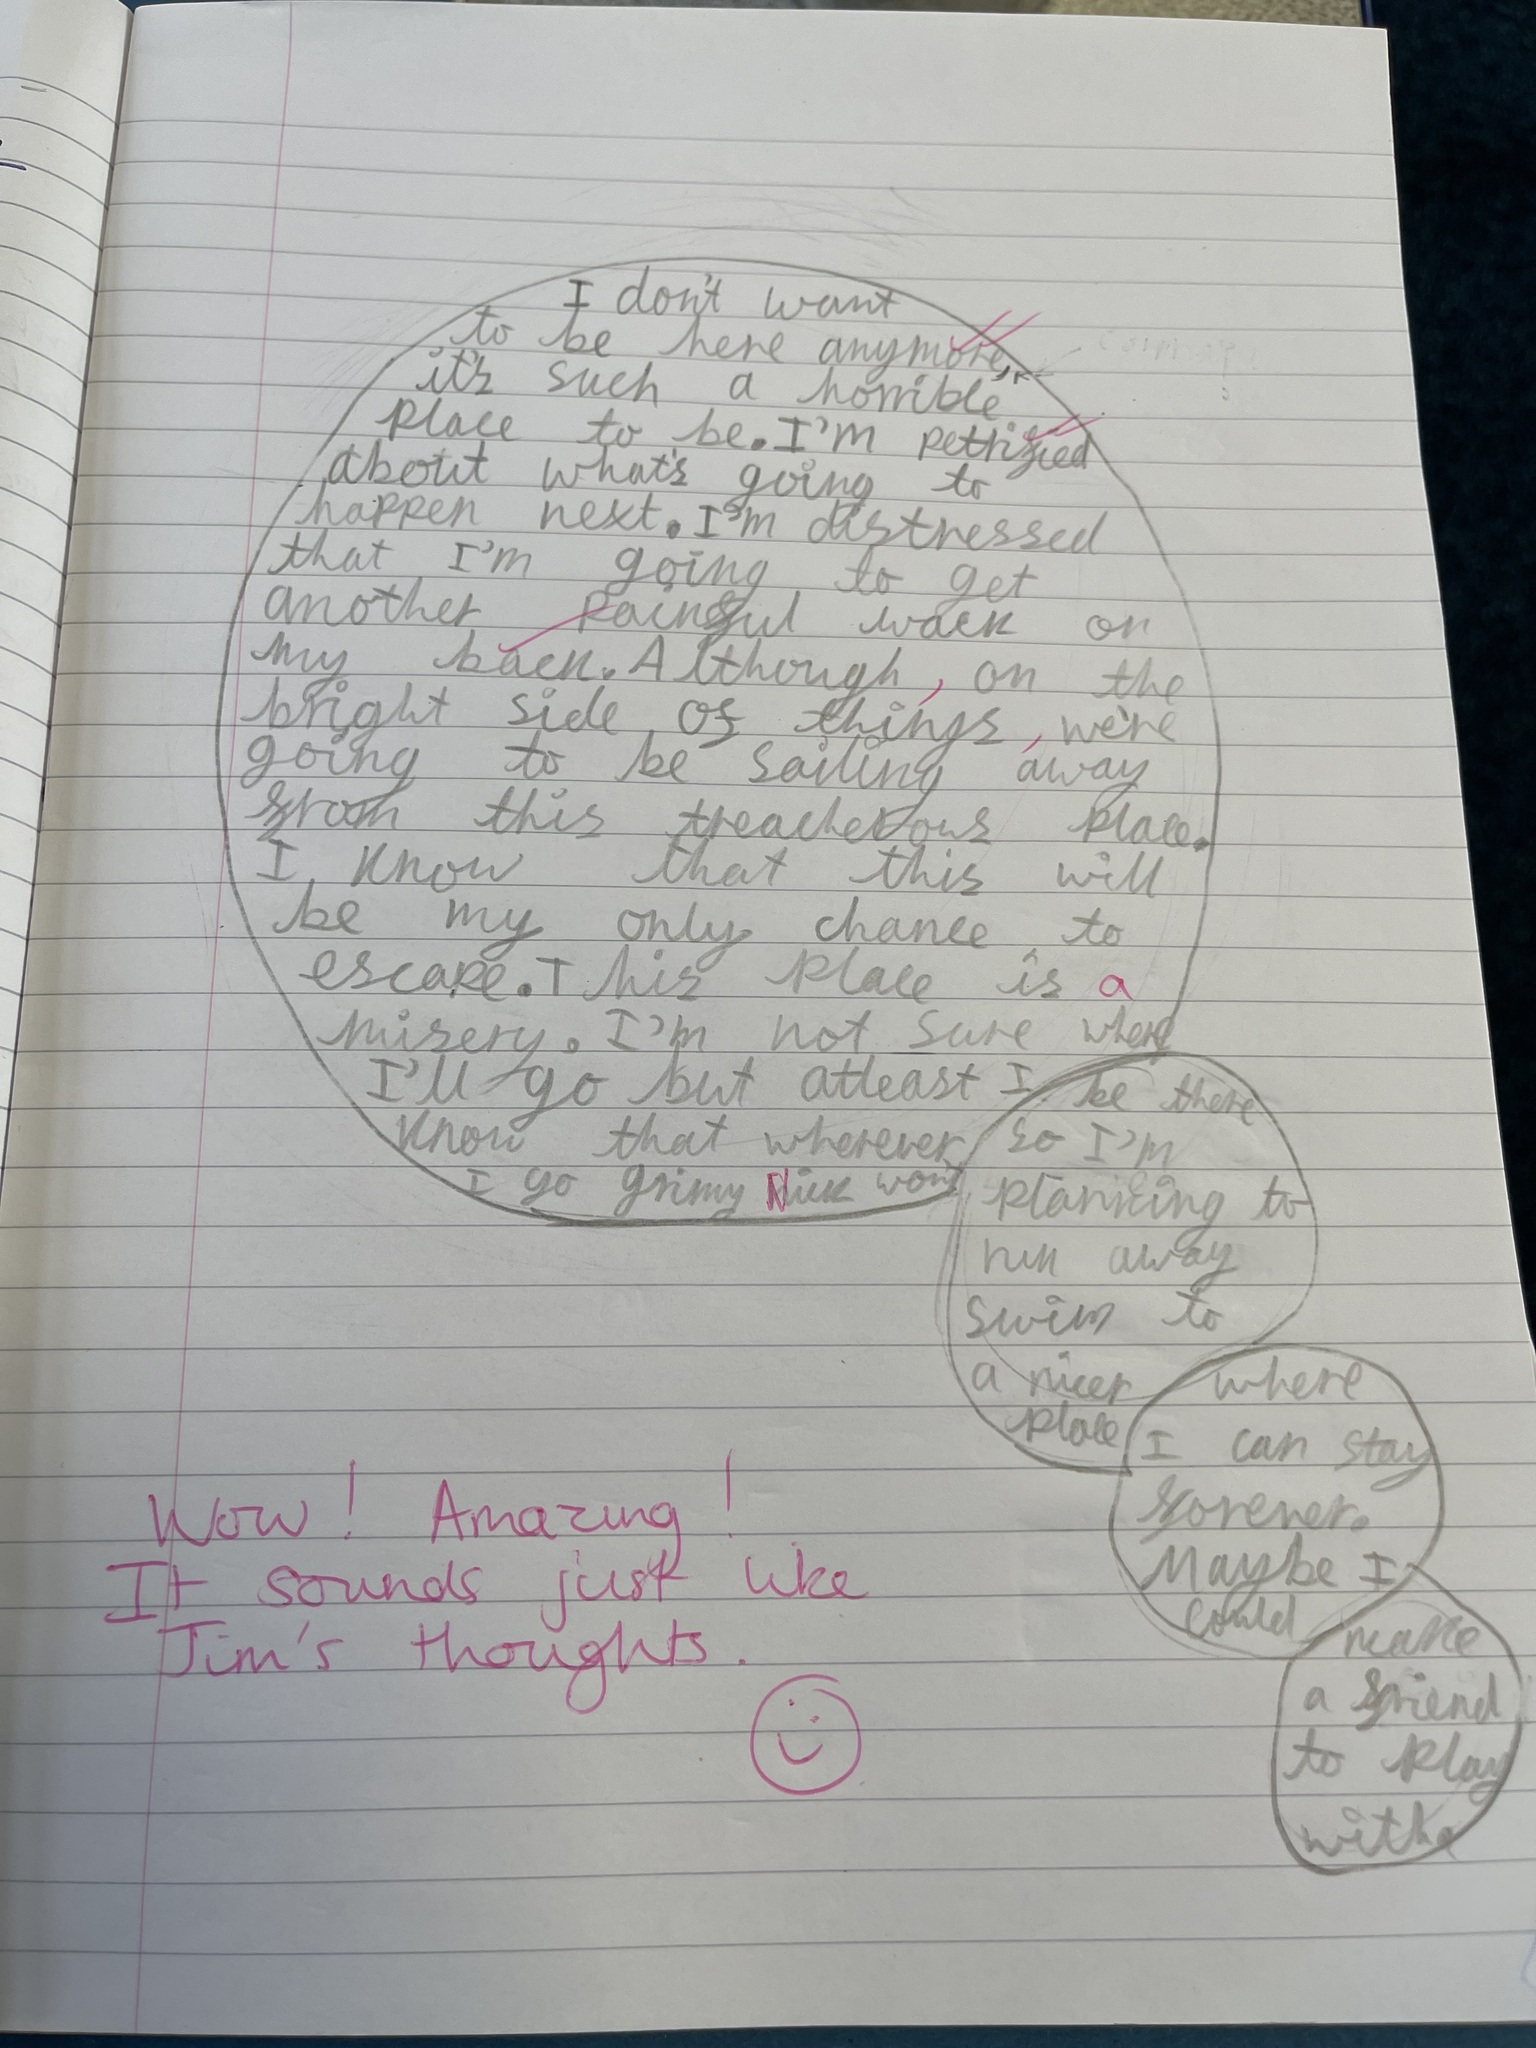 I don't want
to be here anymore,
it's such a horrible
place to be. I'm petrified
about what's going to
happen next. I'm distressed
that I'm going to get
another painful wack on
my back. Although, on the
bright side of things, we're
going to be sailing away
from this treacherous place.
I know that this will
be my only chance to
escape. This place is a
misery. I'm not sure where
I'll go but atleast I
know that wherever
I go grimy Nick won't
be there
so I'm
planning to
run away
swim to
a nicer
place
where
I can stay
forever.
Maybe I
could
make
a friend
to play
with
Wow! Amazing!
It sounds just like
Jim's thoughts.